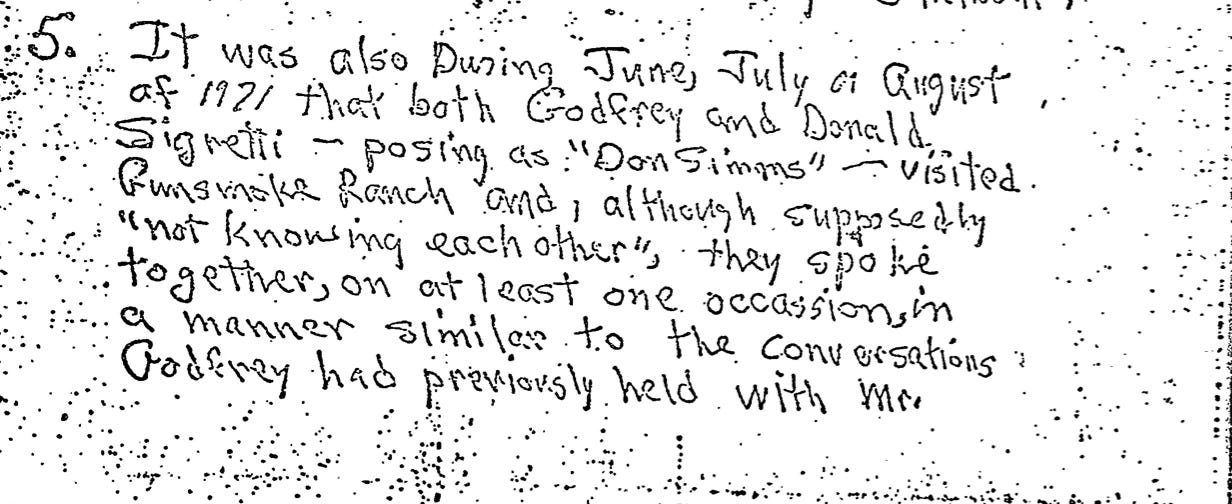 5. It was also During June, July or August
of 1971 that both Godfrey and Donald
Sigretti – posing as "Don Simms" – visited
Gunsmoke Ranch and, although supposedly
"not knowing each other", they spoke
together, on at least one occassion, in
a manner similar to the conversations
Godfrey had previously held with Mr.